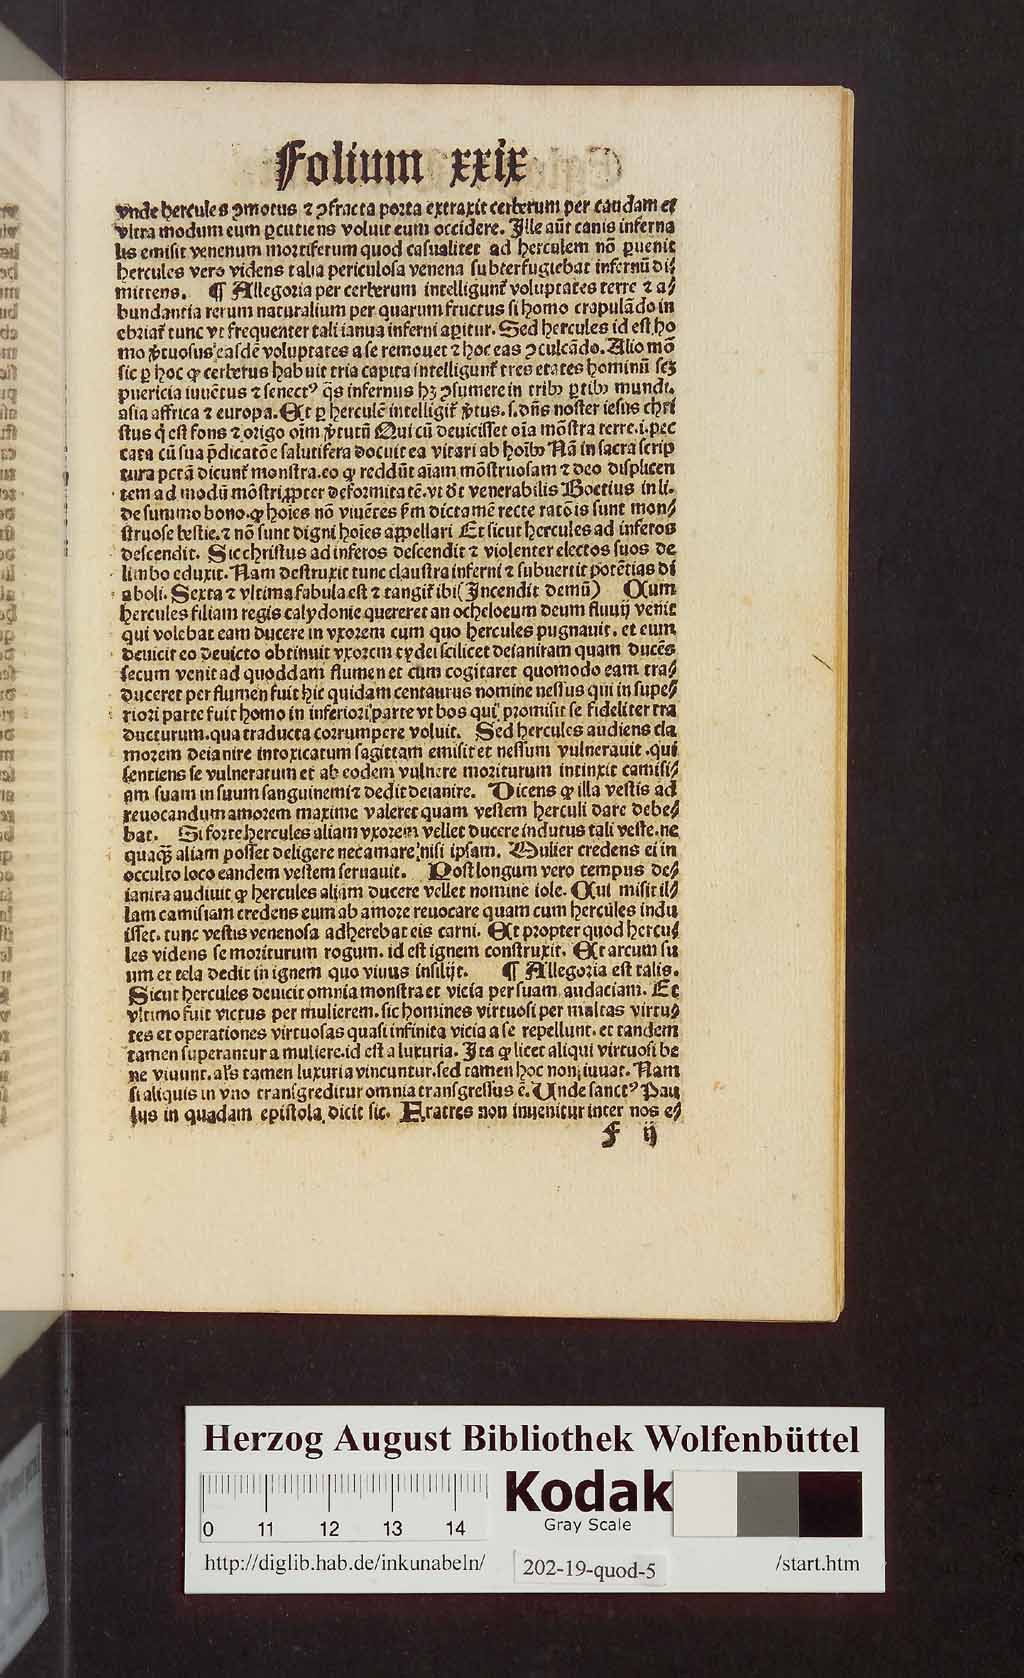 Folium xxix
vnde hercules ꝯmotus ⁊ ꝯfracta porta extraxit cerberum per caudam et
vltra modum eum ꝑcutiens voluit eum occidere. Ille aūt canis inferna
lis emisit venenum mortiferum quod casualiter ad herculem nō ꝑuenit
hercules vero videns talia periculosa venena subterfugiebat infernū di⸗
mittens. ¶ Allegoria per cerberum intelligunt᷑ voluptates terre ⁊ a⸗
bundantia rerum naturalium per quarum fructus si homo crapulādo in
ebriat᷑ tunc vt frequenter tali ianua inferni aꝑitur. Sed hercules id est ho
mo v̓tuosus easdē voluptates a se remouet ⁊ hoc eas ꝯculcādo. Alio mō
sic ꝑ hoc ꝙ cerberus habuit tria capita intelligunt᷑ tres etates hominū scꝫ
puericia iuuētus ⁊ senectꝰ q̄s infernus hꝫ ꝯsumere in tribꝫ ꝑtibꝫ mundi.
asia affrica ⁊ europa. Et ꝑ herculē intelligit᷑ v̓tus. s. dn̄s noster iesus chri
stus q̇ est fons ⁊ origo oīm v̓tutū Qui cū deuicisset oīa mōstra terre. i. pec
cata cū sua p̄dicatōe salutifera docuit ea vitari ab hoībꝫ Nā in sacra scrip
tura pctā dicunt᷑ monstra. eo ꝙ reddūt aīam mōstruosam ⁊ deo displicen
tem ad modū mōstri ꝓpter deformitatē. vt dr̄t venerabilis Boetius in li.
de summo bono. ꝙ hoīes nō viuētes ẜm dictamē recte ratōis sunt mon⸗
struose bestie. ⁊ nō sunt digni hoīes appellari Et sicut hercules ad inferos
descendit. Sic christus ad inferos descendit ⁊ violenter electos suos de
limbo eduxit. Nam destruxit tunc claustra inferni ⁊ subuertit potētias di
aboli. Sexta ⁊ vltima fabula est ⁊ tangit᷑ ibi (Incendit demū) Cum
hercules filiam regis calydonie quereret an ocheloeum deum fluuij venit
qui volebat eam ducere in vxorem cum quo hercules pugnauit. et eum
deuicit eo deuicto obtinuit vxorem tydei scilicet deianiram quam ducēs
secum venit ad quoddam flumen et cum cogitaret quomodo eam tra⸗
duceret per flumen fuit hic quidam centaurus nomine nessus qui in supe⸗
riori parte fuit homo in inferiori parte vt bos qui promisit se fideliter tra
ducturum. qua traducta corrumpere voluit. Sed hercules audiens cla
morem deianire intoxicatum sagittam emisit et nessum vulnerauit. qui
sentiens se vulneratum et ab eodem vulnere moriturum intinxit camisi⸗
am suam in suum sanguinem ⁊ dedit deianire. Dicens ꝙ illa vestis ad
reuocandum amorem maxime valeret quam vestem herculi dare debe⸗
bat. Si forte hercules aliam vxorem vellet ducere indutus tali veste. ne
quaqꝫ aliam posset deligere nec amare nisi ipsam. Mulier credens ei in
occulto loco eandem vestem seruauit. Post longum vero tempus de⸗
ianira audiuit ꝙ hercules aliam ducere vellet nomine iole. Cui misit il⸗
lam camisiam credens eum ab amore reuocare quam cum hercules indu
isset. tunc vestis venenosa adherebat eis carni. Et propter quod hercu⸗
les videns se moriturum rogum. id est ignem construxit. Et arcum su
um et tela dedit in ignem quo viuus insilijt. ¶ Allegoria est talis.
Sicut hercules deuicit omnia monstra et vicia per suam audaciam. Et
vltimo fuit victus per mulierem. sic homines virtuosi per multas virtu⸗
tes et operationes virtuosas quasi infinita vicia a se repellunt. et tandem
tamen superantur a muliere. id est a luxuria. Ita ꝙ licet aliqui virtuosi be
ne viuunt. als tamen luxuria vincuntur. sed tamen hoc non iuuat. Nam
si aliquis in vno transgreditur omnia transgressus ē. Unde sanctꝰ Pau
lus in quadam epistola dicit sic. Fratres non inuenitur inter nos e⸗
f ij
Herzog August Bibliothek Wolfenbüttel
0 11 12 13 14
Kodak
Gray Scale
http://diglib.hab.de/inkunabeln/ 202-19-quod-5 /start.htm